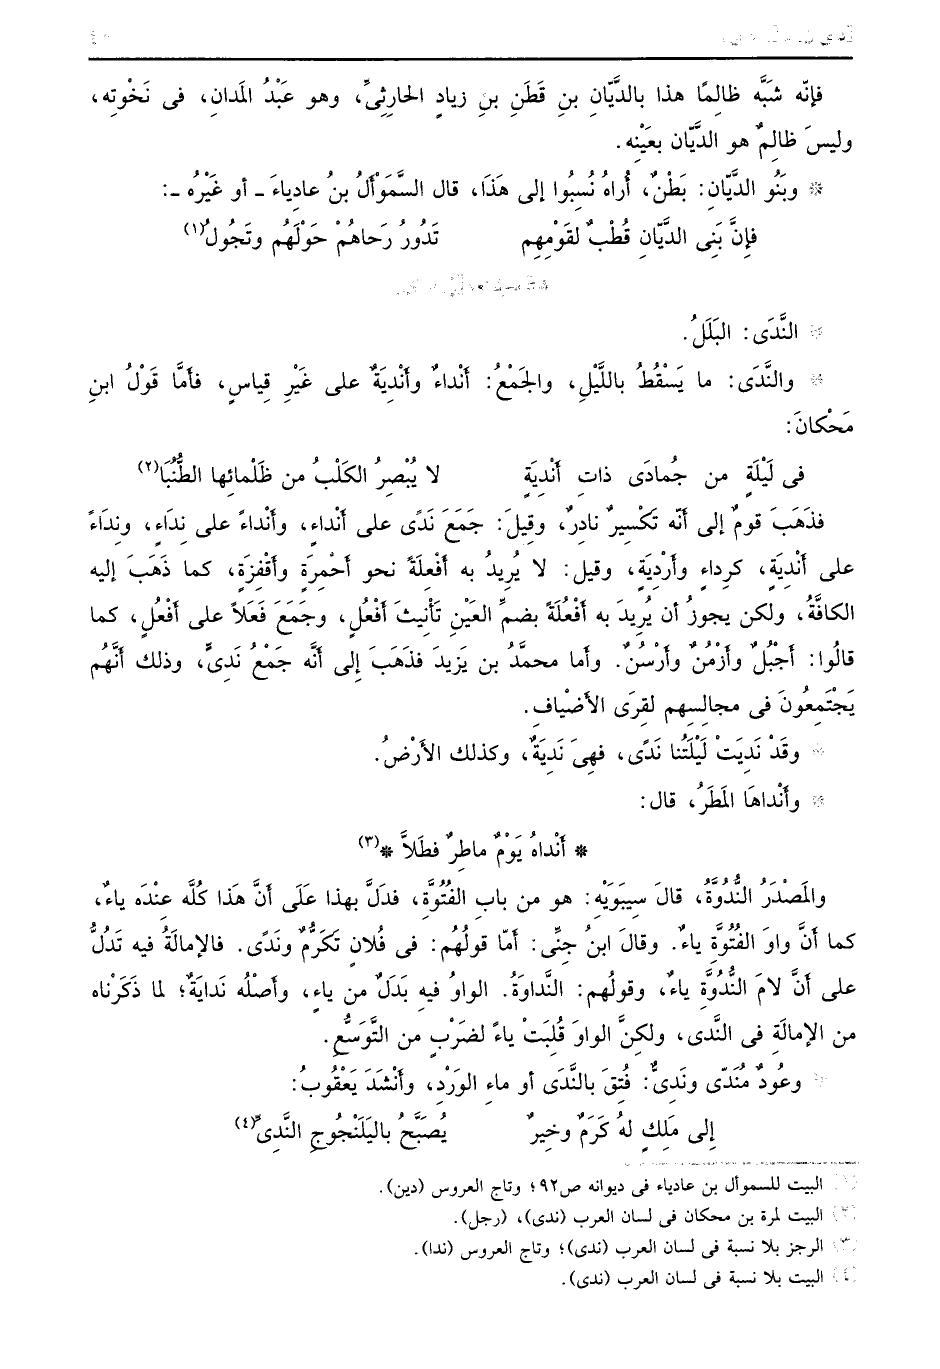 فإنّه شَبَّه ظالِمًا هذا بالدَّيّانِ بنِ قَطَنِ بنِ زيادٍ الحارِثِىِّ، وهو عَبْدُ المَدانِ، فى نَخْوتِه،
وليسَ ظالِمٌ هو الدَّيّان بعَيْنِه.
* وبَنُو الدَّيّانِ: بَطْنٌ، أُراهُ نُسِبُوا إلى هَذَا، قال السَّمَوْألُ بنُ عادِياءَ ـ أو غَيْرُه ـ:
فإنَّ بَنِى الدَّيّانِ قُطْبٌ لقَوْمِهِم تَدُورُ رَحاهُمْ حَوْلَهُم وتَجُولُ(١)
* النَّدَى: البَلَلُ.
* والنَّدَى: ما يَسْقُطُ باللَّيْلِ، والجَمْعُ: أنْداءٌ وأنْدِيَةٌ على غَيْرِ قِياسٍ، فأمَّا قَوْلُ ابنِ
مَحْكانَ:
فى لَيْلَةٍ من جُمادَى ذاتِ أنْدِيَةٍ لا يُبْصِرُ الكَلْبُ من ظَلْمائِها الطُّنُبَا(٢)
فذَهَبَ قومٌ إلى أنّه تكْسِيرٌ نادِرٌ، وقِيلَ: جَمَعَ نَدًى على أنْداءٍ، وأنْداءً على نِداءٍ، ونِداءً
على أنْدِيَةٍ، كرِداءٍ وأرْدِيَةٍ، وقيل: لا يُرِيدُ به أفْعِلَةً نحو أحْمِرَةٍ وأقْفِزَةٍ، كما ذَهَبَ إليه
الكافَّةُ، ولكن يجوزُ أن يُرِيدَ به أفْعُلَةً بضمِّ العَيْنِ تَأْنِيثَ أفْعُلٍ، وجَمَعَ فَعَلاً على أفْعُلٍ، كما
قالُوا: أجْبُلٌ وأزْمُنٌ وأرْسُنٌ. وأما محمَّدُ بن يَزِيدَ فذَهَبَ إلى أنَّه جَمْعُ نَدِىٍّ، وذلك أنَّهُم
يَجْتَمِعُونَ فى مجالِسِهِم لقِرَى الأضْيافِ.
* وقَدْ نَدِيَتْ لَيْلَتُنا نَدًى، فهِىَ نَدِيَةٌ، وكذلك الأرْضُ.
* وأنْداهَا المَطَرُ، قال:
* أنْداهُ يَوْمٌ ماطِرٌ فطَلاَّ *(٣)
والمَصْدَرُ النُّدُوَّةُ، قالَ سِيبَوَيْهِ: هو من بابِ الفُتُوَّةِ، فدَلَّ بهذا عَلَى أنَّ هَذا كلَّه عِنْدَه ياءٌ،
كما أنَّ واوَ الفُتُوَّةِ ياءٌ. وقالَ ابنُ جِنِّى: أمّا قولُهُم: فى فُلانٍ تَكَرُّمٌ ونَدًى. فالإمالَةُ فيه تَدُلُّ
على أنَّ لامَ النُّدُوَّةِ ياءٌ، وقولُهم: النَّداوَةُ. الواوُ فيه بَدَلٌ من ياءٍ، وأصْلُه نَدايَةٌ؛ لما ذَكَرْناه
من الإمالَةِ فى النَّدى، ولكنَّ الواوَ قُلِبَتْ ياءً لضَرْبٍ من التَّوَسُّعِ.
* وعُودٌ مُنَدّى ونَدِىٌّ: فُتِقَ بالنَّدَى أو ماءِ الوَرْدِ، وأنْشَدَ يَعْقُوبُ:
إلى مَلِكٍ لهُ كَرَمٌ وخِيرٌ يُصَبَّحُ باليَلَنْجُوجِ النَّدِىِّ(٤)
(١) البيت للسموأل بن عادياء فى ديوانه ص٩٢؛ وتاج العروس (دين).
(٢) البيت لمرة بن محكان فى لسان العرب (ندى)، (رجل).
(٣) الرجز بلا نسبة فى لسان العرب (ندى)؛ وتاج العروس (ندا).
(٤) البيت بلا نسبة فى لسان العرب (ندى).